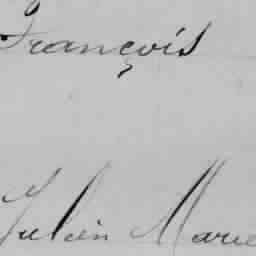 François
Julien Marie